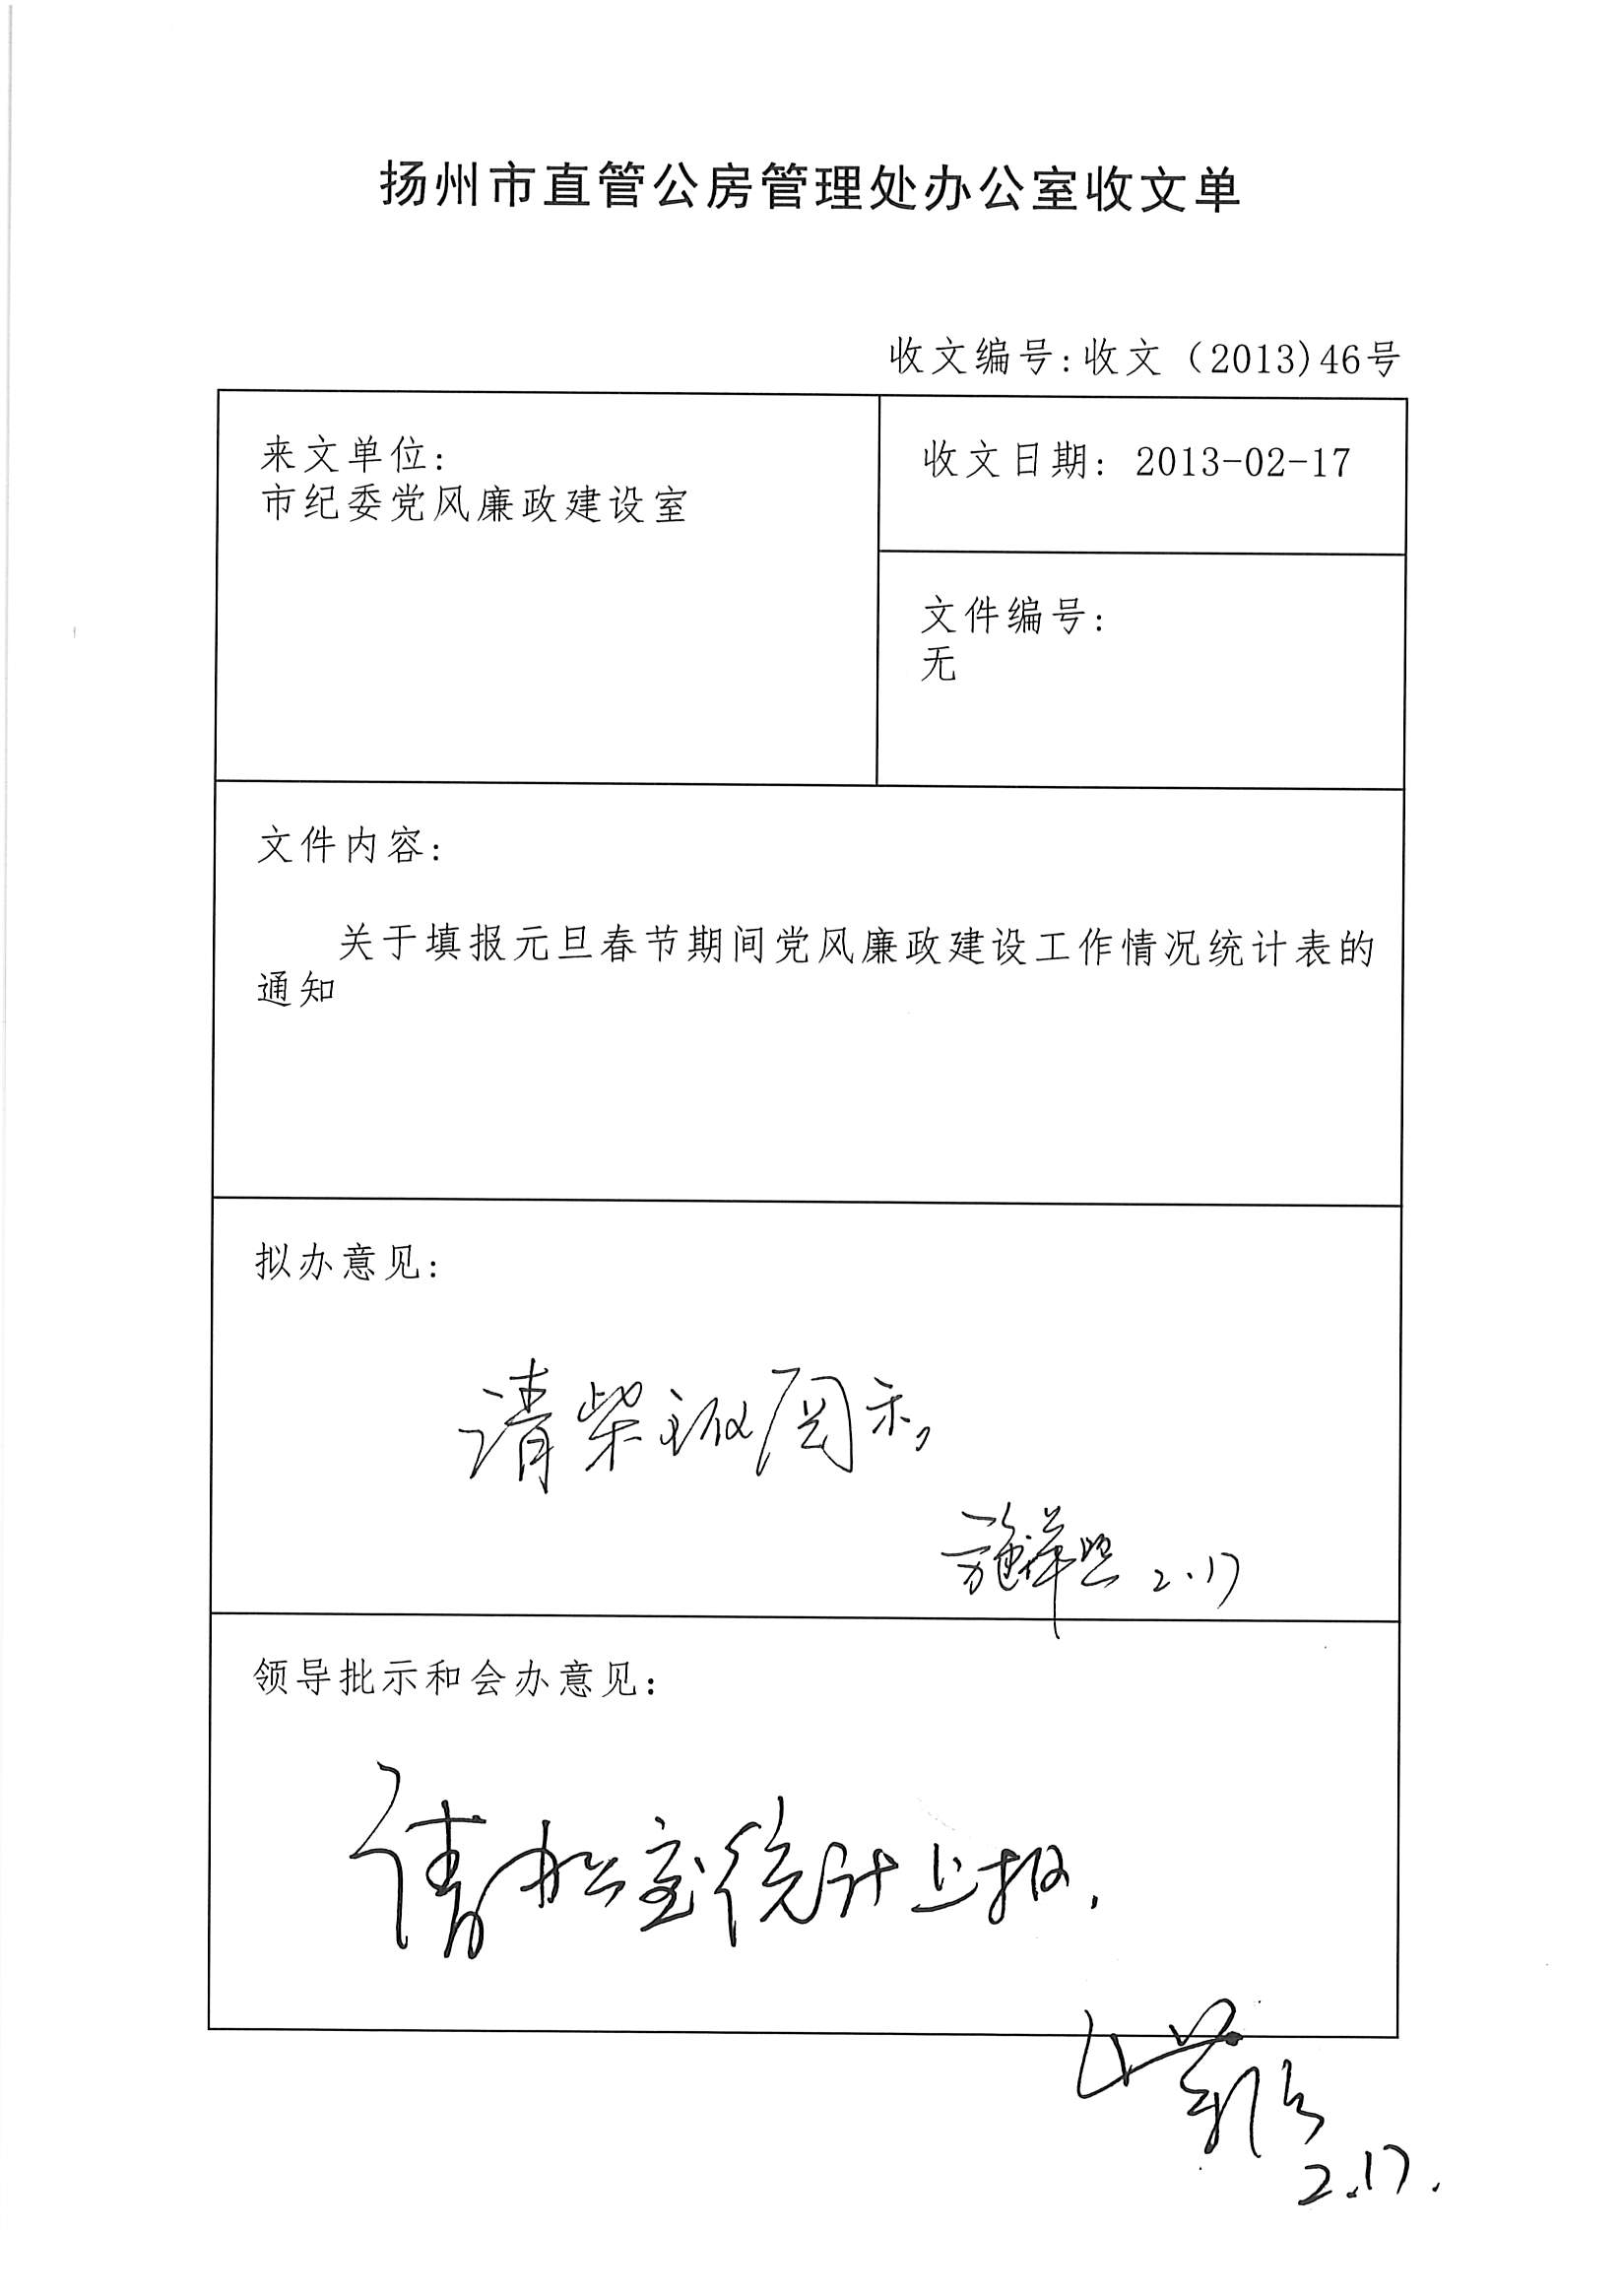 扬州市直管公房管理处办公室收文单
收文编号:收文（2013)46号
来文单位:
市纪委党风廉政建设室
收文日期: 2013-02-17
文件编号:
无
文件内容:
关于填报元旦春节期间党风廉政建设工作情况统计表的
通知
拟办意见:
请柴主阅示。
2.17
领导批示和会办意见:
请办公室统计上报.
2.17.